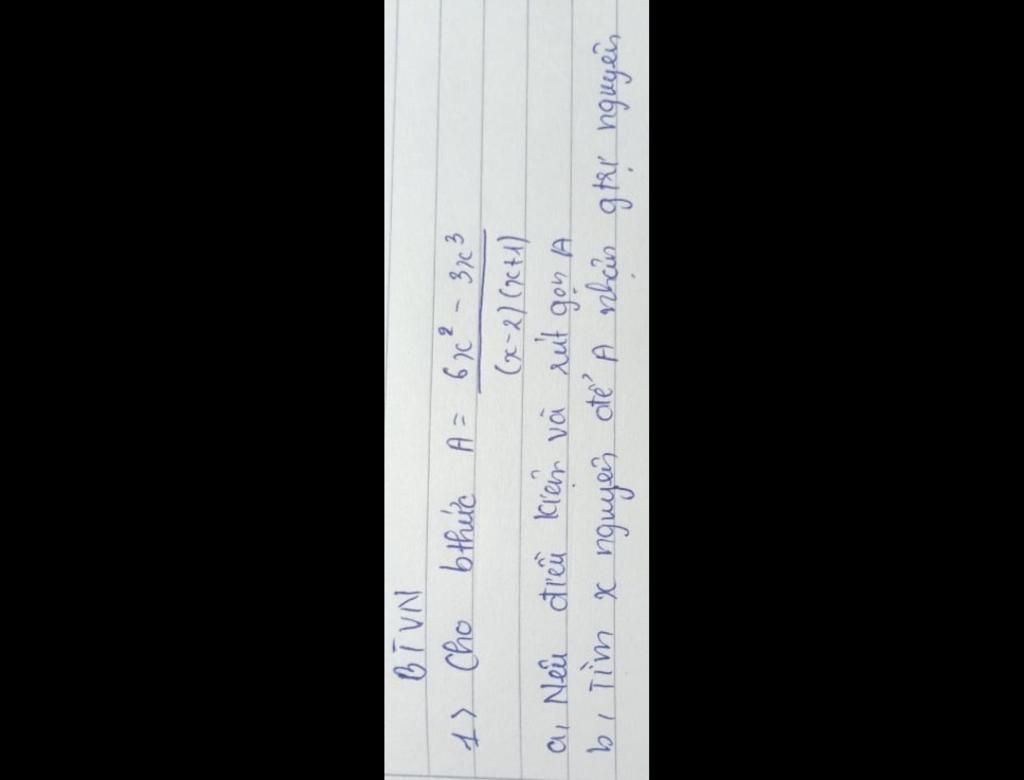 BTVN
1> Cho bthức A = 6x² - 3x³
(x-2)(x+1)
a, Nêu điều kiện và rút gọn A
b, Tìm x nguyên để A nhận gtrị nguyên